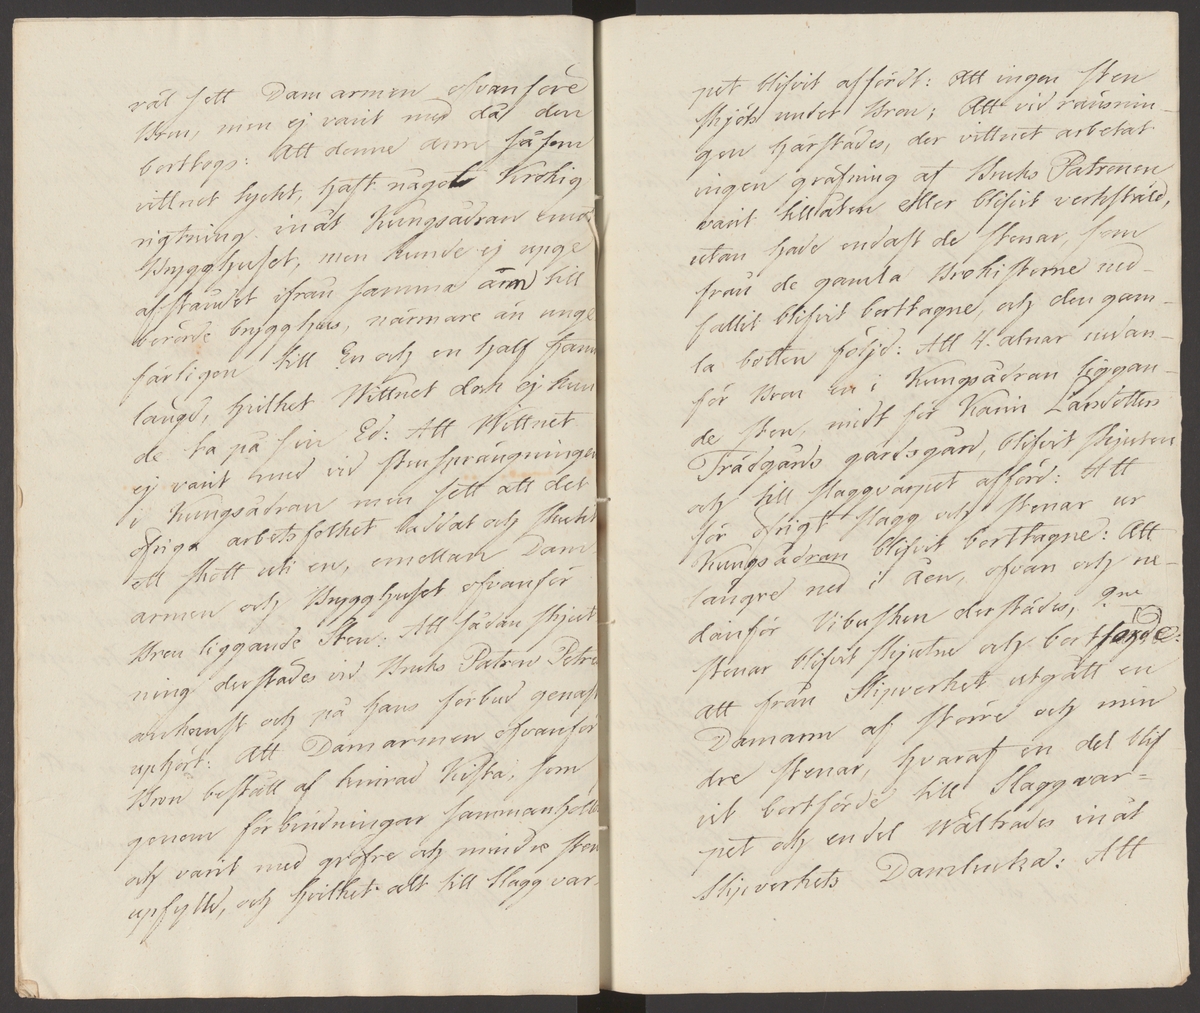 väl sett Damarmen ofvanföre
Bron, men ej varit med då den
borttogs: Att denne arm såsom
vittnet tyckt, haft någol Krokig
rigtning inåt Kungsådran emot
Brygghuset, men kunde ej uppge
afståndet ifrån samma arm till
berörde brygghus, närmare än unge
färligen till En och en half famn
längd, hvilket Wittnet dock ej kun
de ta på sin Ed: Att Wittnet
ej varit med vid stensprängningen
i Kungsådran men sett att det
öfriga arbetsfolket laddat och skutit
ett skott uti en, emellan Dam
armen och Brygghuset ofvanför
Bron liggande Sten: Att sådan skjut
ning derstädes vid Bruks Patron Petre
ankomst och på hans förbud genast
uphört: Att Damarmen ofvanför
Bron bestått af timrad Kista, som
genom förbindningar sammanhölls
och varit med gröfre och mindre sten
upfylld, och hvilket allt till Slaggvar-
pet blifvit affördt: Att ingen sten
skjöts under Bron; Att vid räns­nin-
gen härstädes, der vittnet arbetat
ingen gräfning af Bruks Patronen
varit tillåten eller blifvit verkställd,
utan hade endast de stenar, som
från de gamla Brokistorne ned-
fallit blifvit borttagne, och den gam-
la botten följd: Att 4. alnar nedan-
för Bron en i Kungsådran liggan-
de sten, midt för Karin Larsdotters
Trädgårds gärdsgård, blifvit skjuten
och till slaggvarpet afförd: Att
för öfrigt slagg och stenar ur
Kungsådran blifvit borttagne: Att
längre ned i Åen, ofvan och ne-
danför Vibusken derstädes, 9ne
stenar blifvit skjutne och bortförde:
Att från Skipverket utgått en
Damarm af större och min
dre stenar, hvaraf en del blif
vit bortförde till Slaggvar=
pet och en del Wältrades inåt
Skipverkets Damlucka: Att